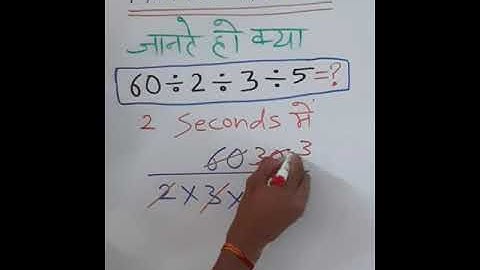 जानते हो क्या
60÷2÷3÷5=?
2 Seconds में
60 30 3
2×3×